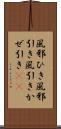 風邪ひき風邪
引き風引きか
ぜ引き